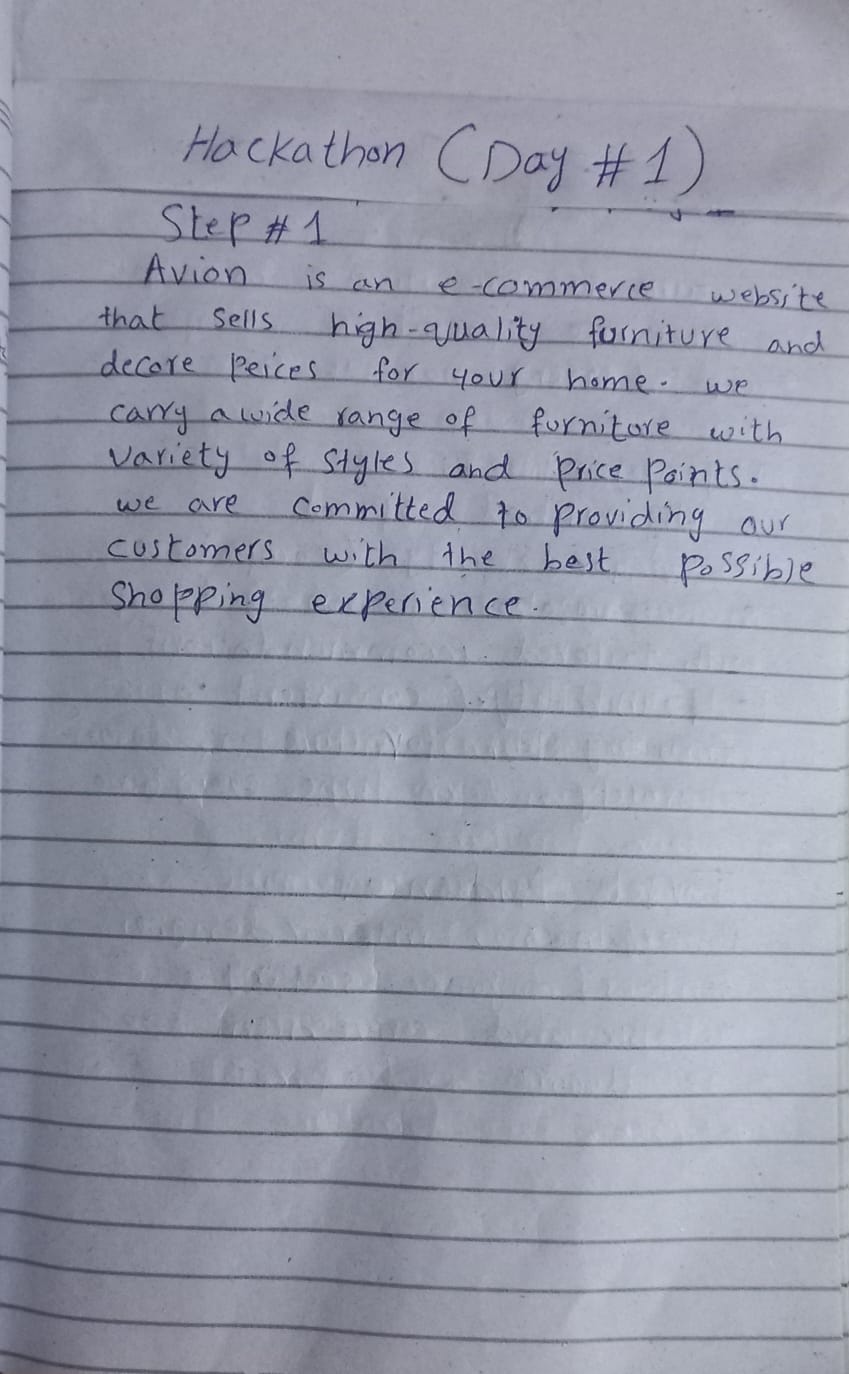 Hackathon (Day #1)
Step #1
Avion is an e-commerce website
that sells high-quality furniture and
decore peices for your home. we
carry a wide range of furniture with
variety of styles and price points.
we are committed to providing our
customers with the best possible
shopping experience.